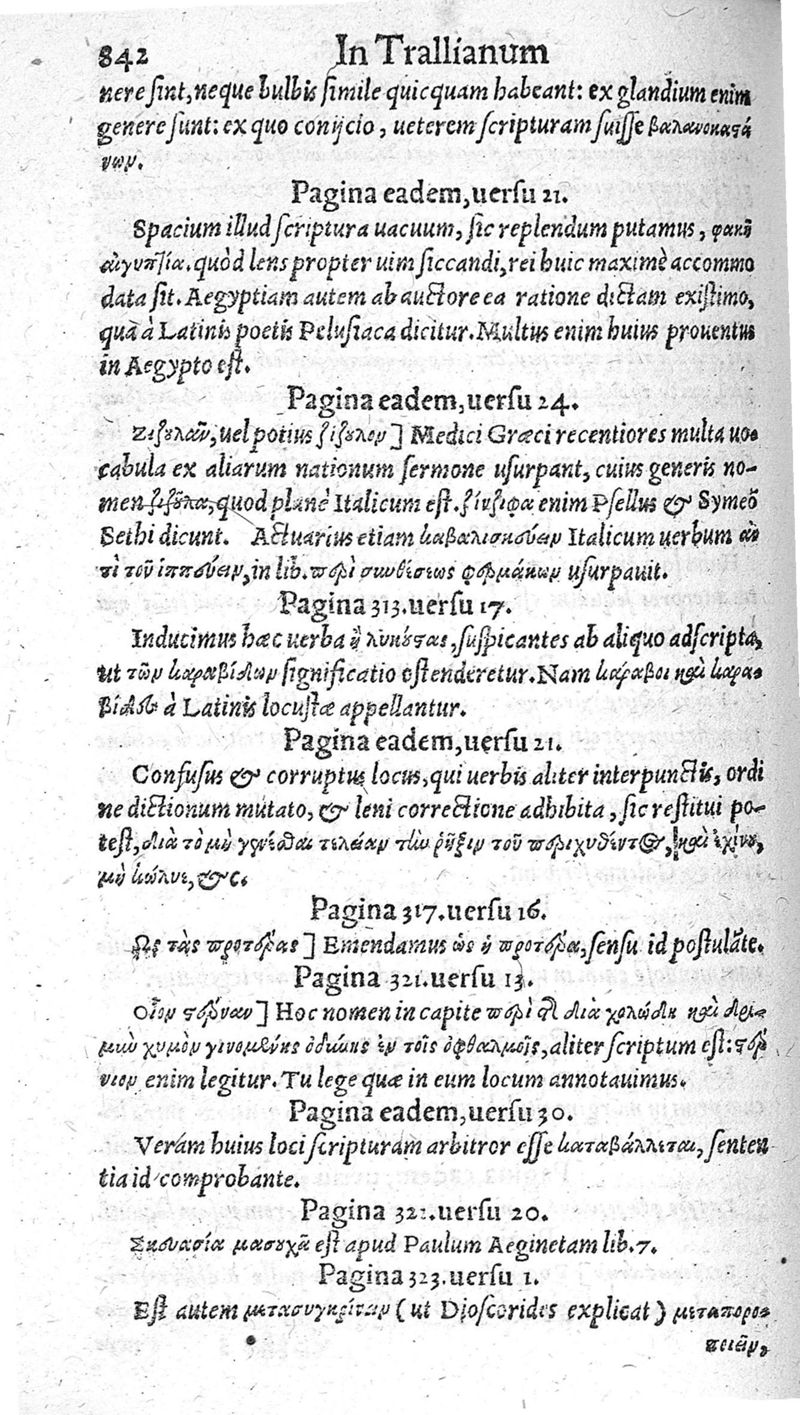 842 In Trallianum
nere sint, neque bulbis simile quicquam habeant: ex glandium enim
genere sunt: ex quo conijcio, ueterem scripturam fuisse βαλανοκατά
νων.
Pagina eadem, uersu 21.
Spacium illud scriptura uacuum, sic replendum putamus, φακῆ
αἰγυπτία. quòd lens propter uim siccandi, rei huic maximè accommo
data sit. Aegyptiam autem ab auctore ea ratione dictam existimo,
quâ à Latinis poetis Pelusiaca dicitur. Multus enim huius prouentus
in Aegypto est.
Pagina eadem, uersu 24.
Ζιζουλαῦν, uel potius ζιζουλον] Medici Græci recentiores multa uo-
cabula ex aliarum nationum sermone usurpant, cuius generis no-
men ζιζουλα, quod planè Italicum est. ζίνζιφα enim Psellus & Symeō
Sethi dicunt. Actuarius etiam καβαλισκεύειν Italicum uerbum ἀν
τὶ τοῦ ἱππεύειν, in lib. περὶ συνθέσεως φαρμάκων usurpauit.
Pagina 313. uersu 17.
Inducimus hæc uerba ἢ λυκόστας, suspicantes ab aliquo adscripta,
ut τῶν καραβίδων significatio ostenderetur. Nam κάραβοι καὶ καρα-
βίδες à Latinis locustæ appellantur.
Pagina eadem, uersu 21.
Confusus & corruptus locus, qui uerbis aliter interpunctis, ordi
ne dictionum mutato, & leni correctione adhibita, sic restitui po-
test, διὰ τὸ μὴ γενέσθαι τελείαν τὴν ῥῆξιν τοῦ περιχυθέντος, καὶ ἐχίνου,
μὴ κώλυε, &c.
Pagina 317. uersu 16.
Ως τὰς προτέρας] Emendamus ὡς ἡ προτέρα, sensu id postulāte.
Pagina 321. uersu 13.
Οἷον τερύναν] Hoc nomen in capite περὶ τῆς διὰ χολώδη καὶ δρι-
μὺν χυμὸν γινομένης ὀδύνης ἐν τοῖς ὀφθαλμοῖς, aliter scriptum est: τερ
νιον enim legitur. Tu lege quæ in eum locum annotauimus.
Pagina eadem, uersu 30.
Veram huius loci scripturam arbitror esse καταβάλλεται, senten
tia id comprobante.
Pagina 322. uersu 20.
Σκευασία μασουχᾶ est apud Paulum Aeginetam lib. 7.
Pagina 323. uersu 1.
Est autem μετασυγκρίνειν (ut Dioscorides explicat) μεταπορο-
ποιεῖν,